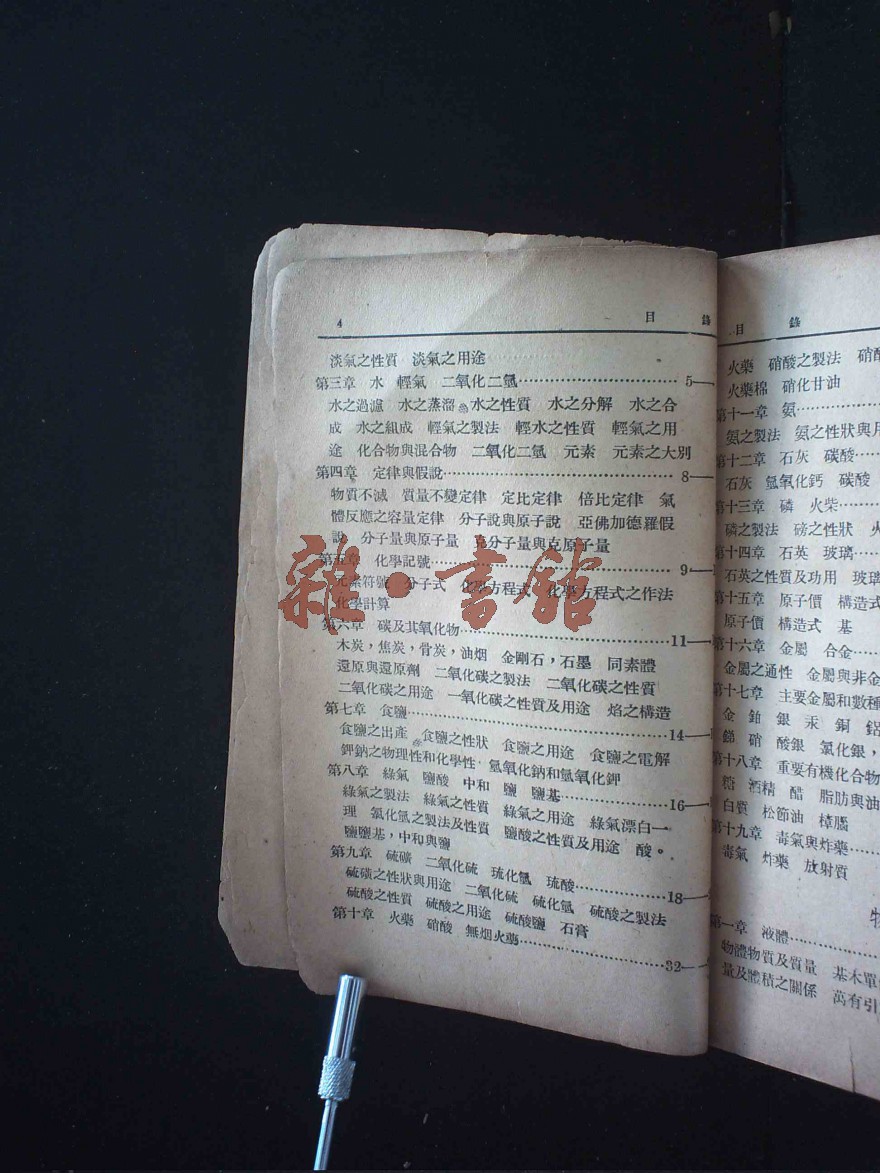 4 目 錄
淡氣之性質 淡氣之用途
第三章 水 輕氣 二氧化二氫………………5—
水之過濾 水之蒸溜 水之性質 水之分解 水之合
成 水之組成 輕氣之製法 輕水之性質 輕氣之用
途 化合物與混合物 二氧化二氫 元素 元素之大別
第四章 定律與假說………………8—
物質不滅 質量不變定律 定比定律 倍比定律 氣
體反應之容量定律 分子說與原子說 亞佛加德羅假
說 分子量與原子量 克分子量與克原子量
第五章 化學記號………………9—
元素符號 分子式 化學方程式 化學方程式之作法
化學計算
第六章 碳及其氧化物………………11—
木炭，焦炭，骨炭，油烟 金剛石，石墨 同素體
還原與還原劑 二氧化碳之製法 二氧化碳之性質
二氧化碳之用途 一氧化碳之性質及用途 焰之構造
第七章 食鹽………………14—
食鹽之出產 食鹽之性狀 食鹽之用途 食鹽之電解
鉀鈉之物理性和化學性 氫氧化鈉和氫氧化鉀
第八章 綠氣 鹽酸 中和 鹽 鹽基………………16—
綠氣之製法 綠氣之性質 綠氣之用途 綠氣漂白一
理 氯化氫之製法及性質 鹽酸之性質及用途 酸。
鹽鹽基，中和與鹽
第九章 硫磺 二氧化硫 琉化氫 琉酸………………18—
硫磺之性狀與用途 二氧化硫 硫化氫 硫酸之製法
硫酸之性質 硫酸之用途 硫酸鹽 石膏
第十章 火藥 硝酸 無烟火藥………………32—
目 錄
火藥 硝酸之製法 硝酸
火藥棉 硝化甘油
第十一章 氨………………
氨之製法 氨之性狀與用
第十二章 石灰 碳酸………………
石灰 氫氧化鈣 碳酸
第十三章 磷 火柴………………
磷之製法 磅之性狀 火
第十四章 石英 玻璃………………
石英之性質及功用 玻璃
第十五章 原子價 構造式
原子價 構造式 基
第十六章 金屬 合金………………
金屬之通性 金屬與非金
第十七章 主要金屬和數種
金 鉑 銀 汞 銅 鋁
銻 硝 酸銀 氯化銀，
第十八章 重要有機化合物
糖 酒精 醋 脂肪與油
白質 松節油 樟腦
第十九章 毒氣與炸藥………………
毒氣 炸藥 放射質
物
第一章 液體………………
物體物質及質量 基本單
量及體積之關係 萬有引
雜·書館